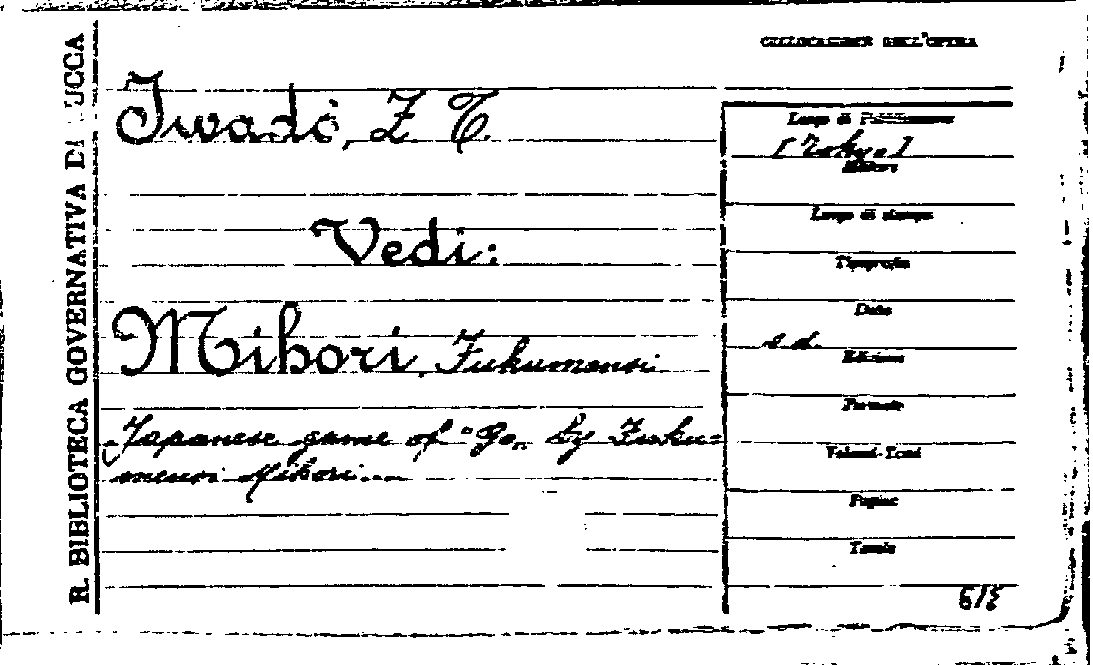 R. BIBLIOTECA GOVERNATIVA DI LUCCA
COLLOCAZIONE DELL'OPERA
Iwadò, Z T.
Vedi:
Mihori, Fukumensi
Japanese game of "Go" by Fuku=
mensi Mihori....
Luogo di Pubblicazione
[Tokyo]
Editore
Luogo di stampa
Tipografia
Data
s. d.
Edizione
Formato
Volumi-Tomi
Pagine
Tavole